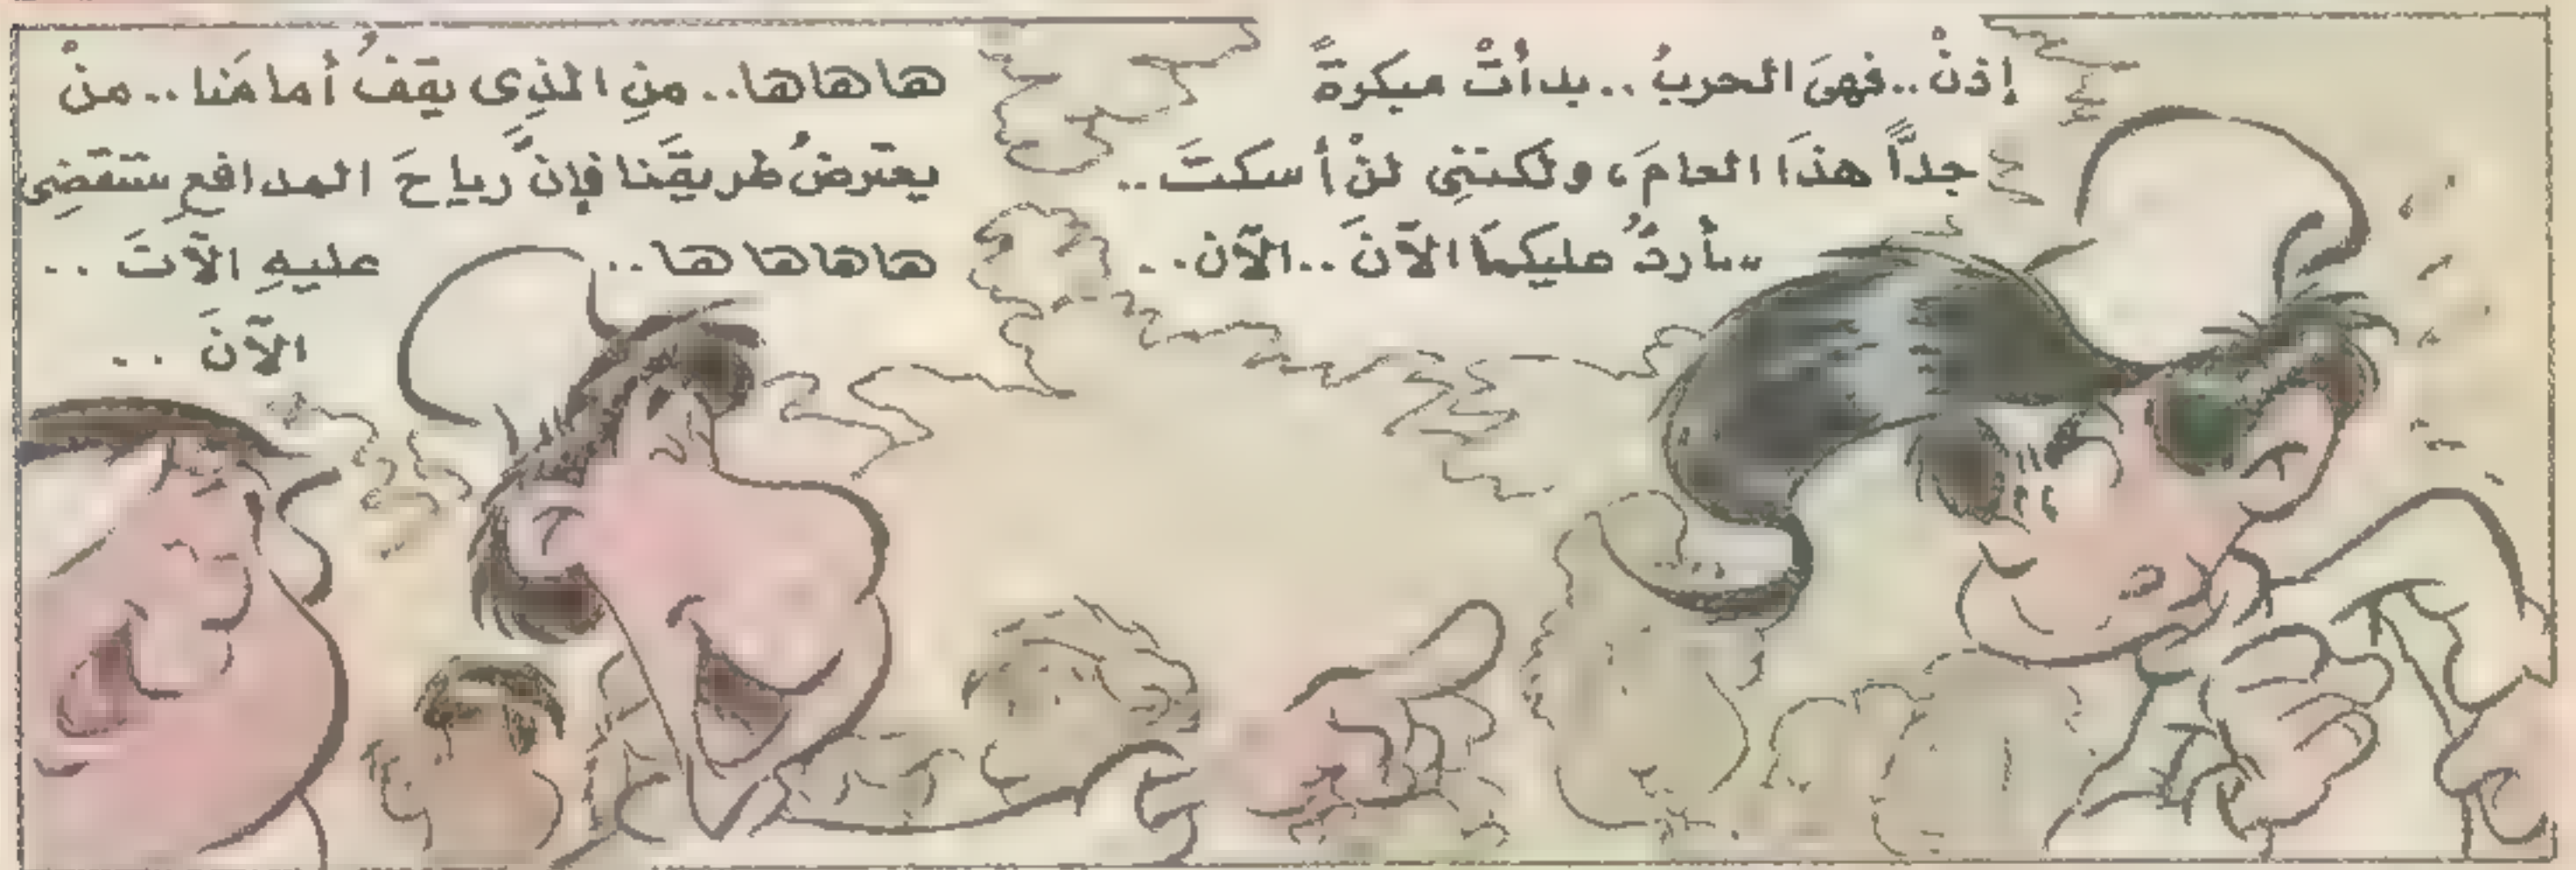 إذنْ.. فهىَ الحربُ.. بدأتْ مبكرةً
جداًّ هذَا العامَ، ولكننِى لنْ أسكتَ..
سأردُّ عليكمَا الآنَ.. الآنَ..
هاهاها.. منِ الذِى يقفُ أمامَنا.. منْ
يعترضُ طريقَنا فإنَّ رياحَ المدافعِ ستقضِى
عليهِ الآنَ ..
الآنَ ..
هاهاهاها..